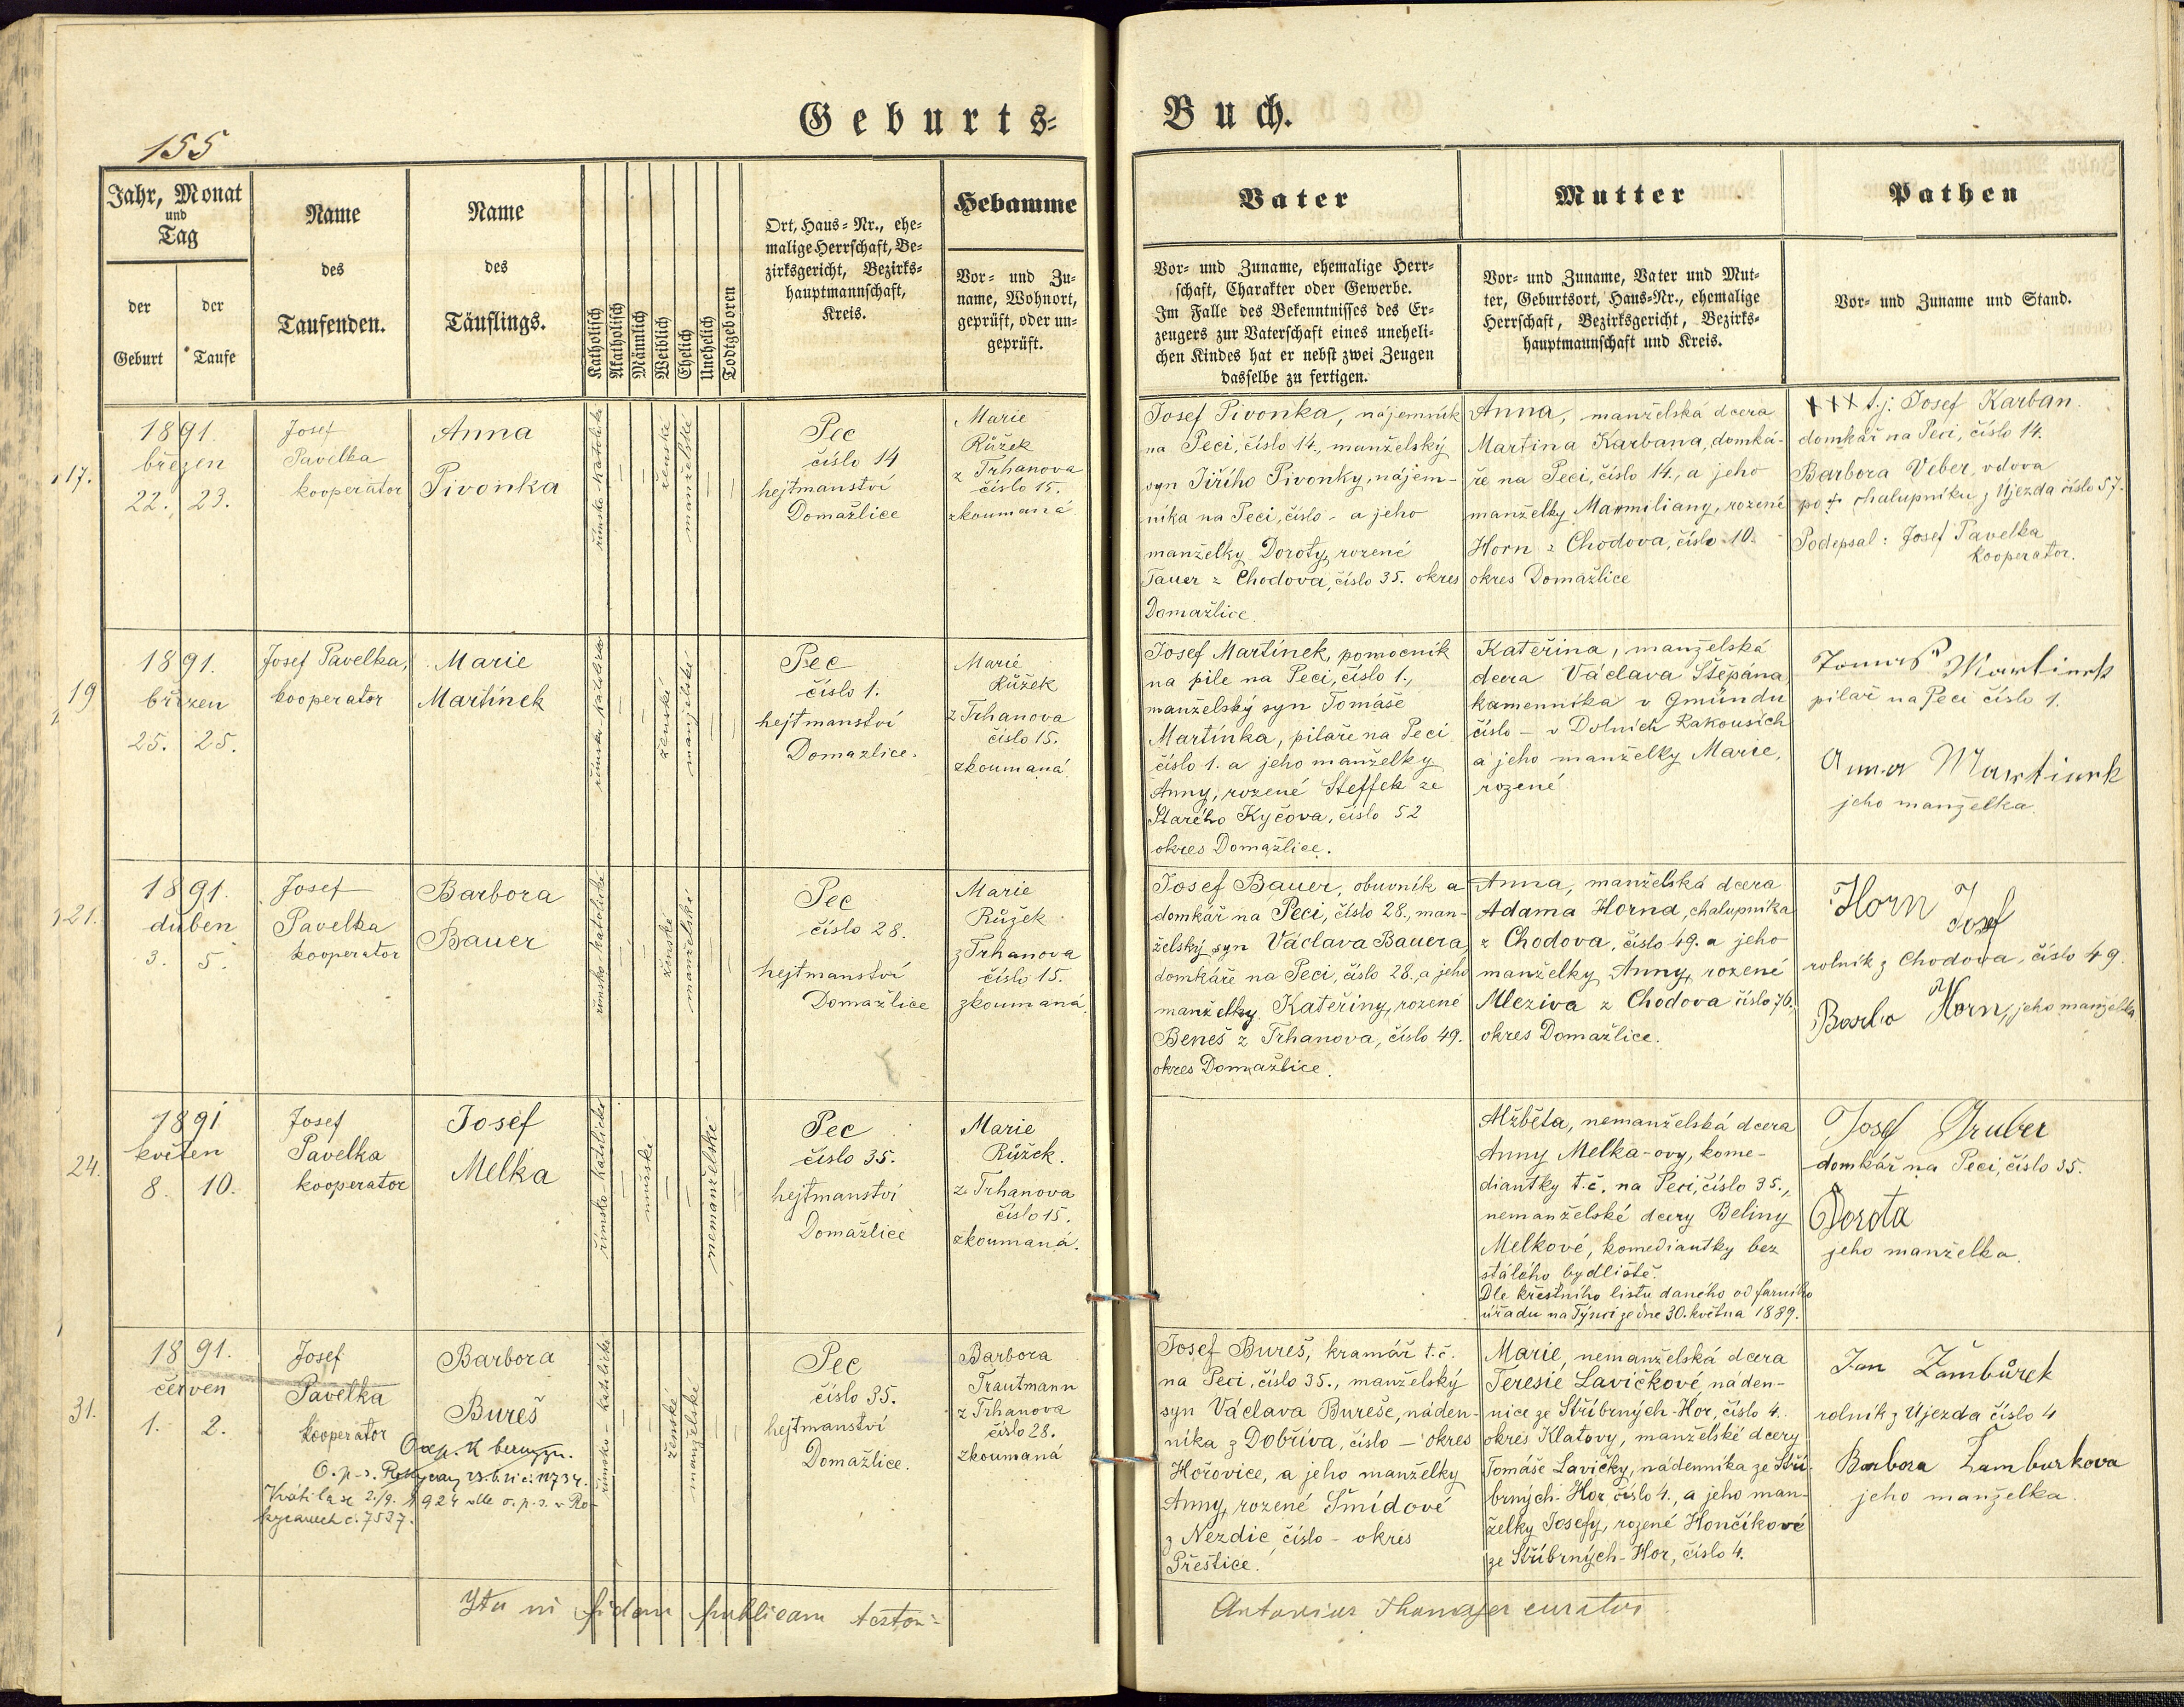 Geburts=
Buch.
155
Jahr, Monat
und
Tag
der
Geburt
der
Taufe
Name
des
Taufenden.
Name
des
Täuflings.
Katholisch
Akatholisch
Männlich
Weiblich
Ehelich
Unehelich
Todtgeboren
Ort, Haus=Nr., ehe=
malige Herrschaft, Be=
zirksgericht, Bezirks=
hauptmannschaft,
Kreis.
Hebamme
Vor= und Zu=
name, Wohnort,
geprüft, oder un=
geprüft.
Vater
Vor= und Zuname, ehemalige Herr=
schaft, Charakter oder Gewerbe.
Im Falle des Bekenntnisses des Er=
zeugers zur Vaterschaft eines uneheli=
chen Kindes hat er nebst zwei Zeugen
dasselbe zu fertigen.
Mutter
Vor= und Zuname, Vater und Mut=
ter, Geburtsort, Haus=Nr., ehemalige
Herrschaft, Bezirksgericht, Bezirks=
hauptmannschaft und Kreis.
Pathen
Vor= und Zuname und Stand.
17.
1891.
březen
22. 23.
Josef
Pavelka
kooperator
Anna
Pivonka
římsko-katolické
ženské
manželské
Pec
číslo 14
hejtmanství
Domažlice
Marie
Růžek
z Trhanova
číslo 15.
zkoumaná
Josef Pivonka, nájemník
na Peci, číslo 14., manželský
syn Jiřího Pivonky, nájem-
níka na Peci, číslo - a jeho
manželky Doroty, rozené
Tauer z Chodova, číslo 35. okres
Domažlice.
Anna, manželská dcera
Martina Karbana, domká-
ře na Peci, číslo 14., a jeho
manželky Maxmiliany, rozené
Horn z Chodova, číslo 10.
okres Domažlice
XXX t.j. Josef Karban.
domkář na Peci, číslo 14.
Barbora Veber, vdova
po + chalupníku z Újezda číslo 57.
Podepsal: Josef Pavelka
kooperator.
19
1891.
březen
25. 25.
Josef Pavelka,
kooperator
Marie
Martínek
římsko-katolické
ženské
manželské
Pec
číslo 1.
hejtmanství
Domažlice.
Marie
Růžek
z Trhanova
číslo 15.
zkoumaná.
Josef Martínek, pomocník
na pile na Peci, číslo 1.,
manželský syn Tomáše
Martínka, pilaře na Peci
číslo 1. a jeho manželky
Anny, rozené Steffek ze
Starého Kyčova, číslo 52
okres Domažlice.
Kateřina, manželská
dcera Václava Štěpána
kamenníka v Gmündu
číslo - v Dolních Rakousích
a jeho manželky Marie,
rozené
Tomáš Martinek
pilař na Peci číslo 1.
Anna Martinek
jeho manželka.
21.
1891.
duben
3. 5.
Josef
Pavelka
kooperator
Barbora
Bauer
římsko-katolické
ženské
manželské
Pec
číslo 28.
hejtmanství
Domažlice
Marie
Růžek
z Trhanova
číslo 15.
zkoumaná.
Josef Bauer, obuvník a
domkář na Peci, číslo 28., man-
želský syn Václava Bauera,
domkáře na Peci, číslo 28., a jeho
manželky Kateřiny, rozené
Beneš z Trhanova, číslo 49.
okres Domažlice.
Anna, manželská dcera
Adama Horna, chalupníka
z Chodova, číslo 49. a jeho
manželky Anny, rozené
Mleziva z Chodova číslo 76.,
okres Domažlice.
Horn Josef
rolník z Chodova, číslo 49.
Barbo Horn, jeho manželka.
24.
1891
květen
8. 10.
Josef
Pavelka
kooperator
Josef
Melka
římsko-katolické
mužské
nemanželské
Pec
číslo 35.
hejtmanství
Domažlice
Marie
Růžek.
z Trhanova
číslo 15.
zkoumaná.
Alžběta, nemanželská dcera
Anny Melka-ovy, kome-
diantky t.č. na Peci, číslo 35.,
nemanželské dcery Beliny
Melkové, komediantky bez
stálého bydliště.
Dle křestního listu daného od farního
úřadu na Týnci ze dne 30. května 1889.
Josef Gruber
domkář na Peci, číslo 35.
Dorota
jeho manželka.
31.
1891.
červen
1. 2.
Josef
Pavelka
kooperator
O.p.s. Rokycany 23.6. č. 11734.
Vrátila se 2./9. 1924 dle o.p.s. v Ro-
kycanech č. 7537.
Barbora
Bureš
římsko-katolické
ženské
manželské
Pec
číslo 35.
hejtmanství
Domažlice.
Barbora
Trautmann
z Trhanova
číslo 28.
zkoumaná
Josef Bureš, kramář t.č.
na Peci, číslo 35., manželský
syn Václava Bureše, náden-
níka z Dobříva, číslo - okres
Hořovice, a jeho manželky
Anny, rozené Šmídové
z Nezdic, číslo - okres
Přeštice.
Marie, nemanželská dcera
Teresie Lavičkové, náden-
nice ze Stříbrných-Hor, číslo 4.
okres Klatovy, manželské dcery
Tomáše Lavičky, nádenníka ze Stří-
brných-Hor, číslo 4., a jeho man-
želky Josefy, rozené Hončíkové
ze Stříbrných-Hor, číslo 4.
Jan Žambůrek
rolník z Újezda číslo 4
Barbora Žamburkova
jeho manželka.
Ita in fidem publicam testor:
Antonius Thomayer curatus